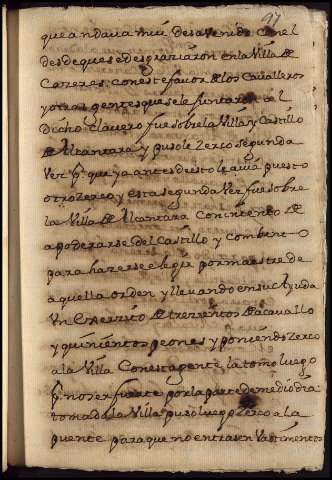 97
que andaua mui desavenido con el
desde que se desgraziáron en la Villa de
Cazeres. con este favor de los Cavalleros
y otras gentes que se le juntaron al
dicho clavero fue sobre la Villa y Castillo
de Alcantara y pusole zerco segunda
vez pr que ya antes de esto le avia puesto
otro zerco y esta segunda vez fue sobre
la Villa de Alcantara con intento de
apoderarse del Castillo y combento
para hazerse elegir por maestre de
aquella orden y llevando en su ayuda
Un exerzito de trezientos de acavallo
y quinientos peones y poniendo zerco
a la Villa con esta gente la tomo luego
pr no ser fuerte por la parte de medio dia
tomada la Villa puso luego zerco a la
puente para que no entrasen vastimentos